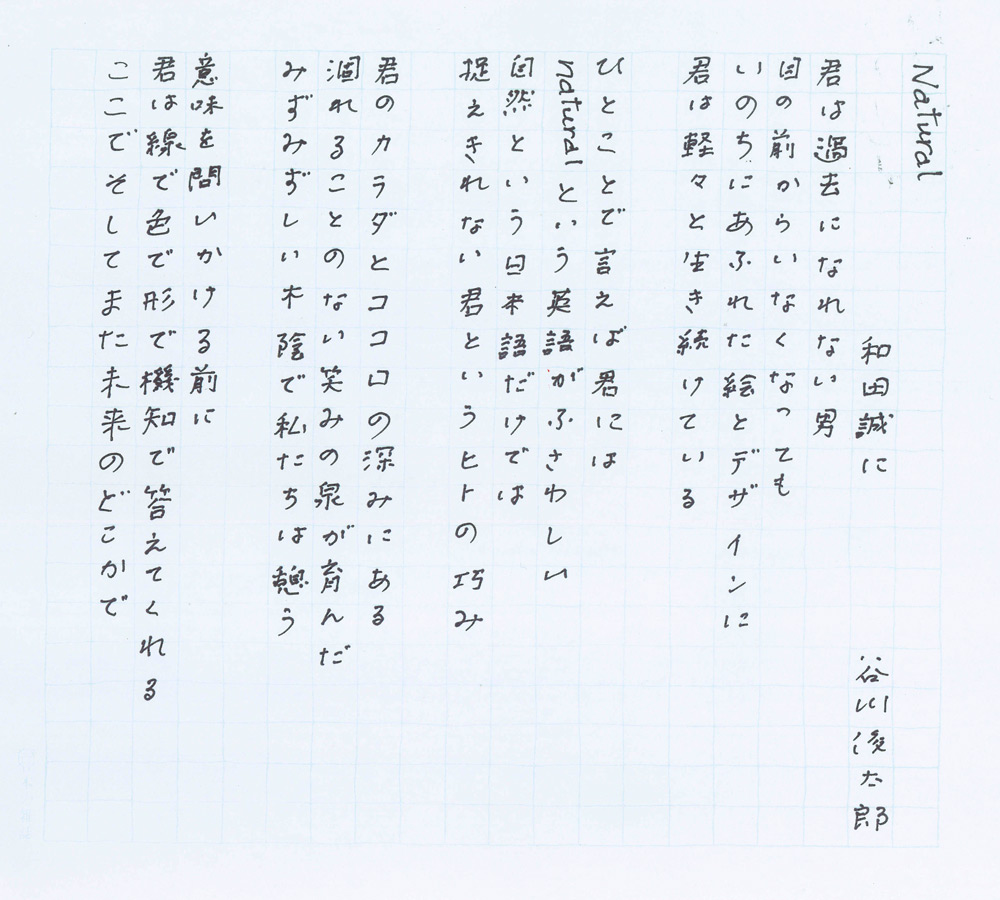 Natural
和田誠に 谷川俊太郎
君は過去になれない男
目の前からいなくなっても
いのちにあふれた絵とデザインに
君は軽々と生き続けている
ひとことで言えば君には
naturalという英語がふさわしい
自然という日本語だけでは
捉えきれない君というヒトの巧み
君のカラダとココロの深みにある
涸れることのない笑みの泉が育んだ
みずみずしい木陰で私たちは憩う
意味を問いかける前に
君は線で色で形で機知で答えてくれる
ここでそしてまた未来のどこかで